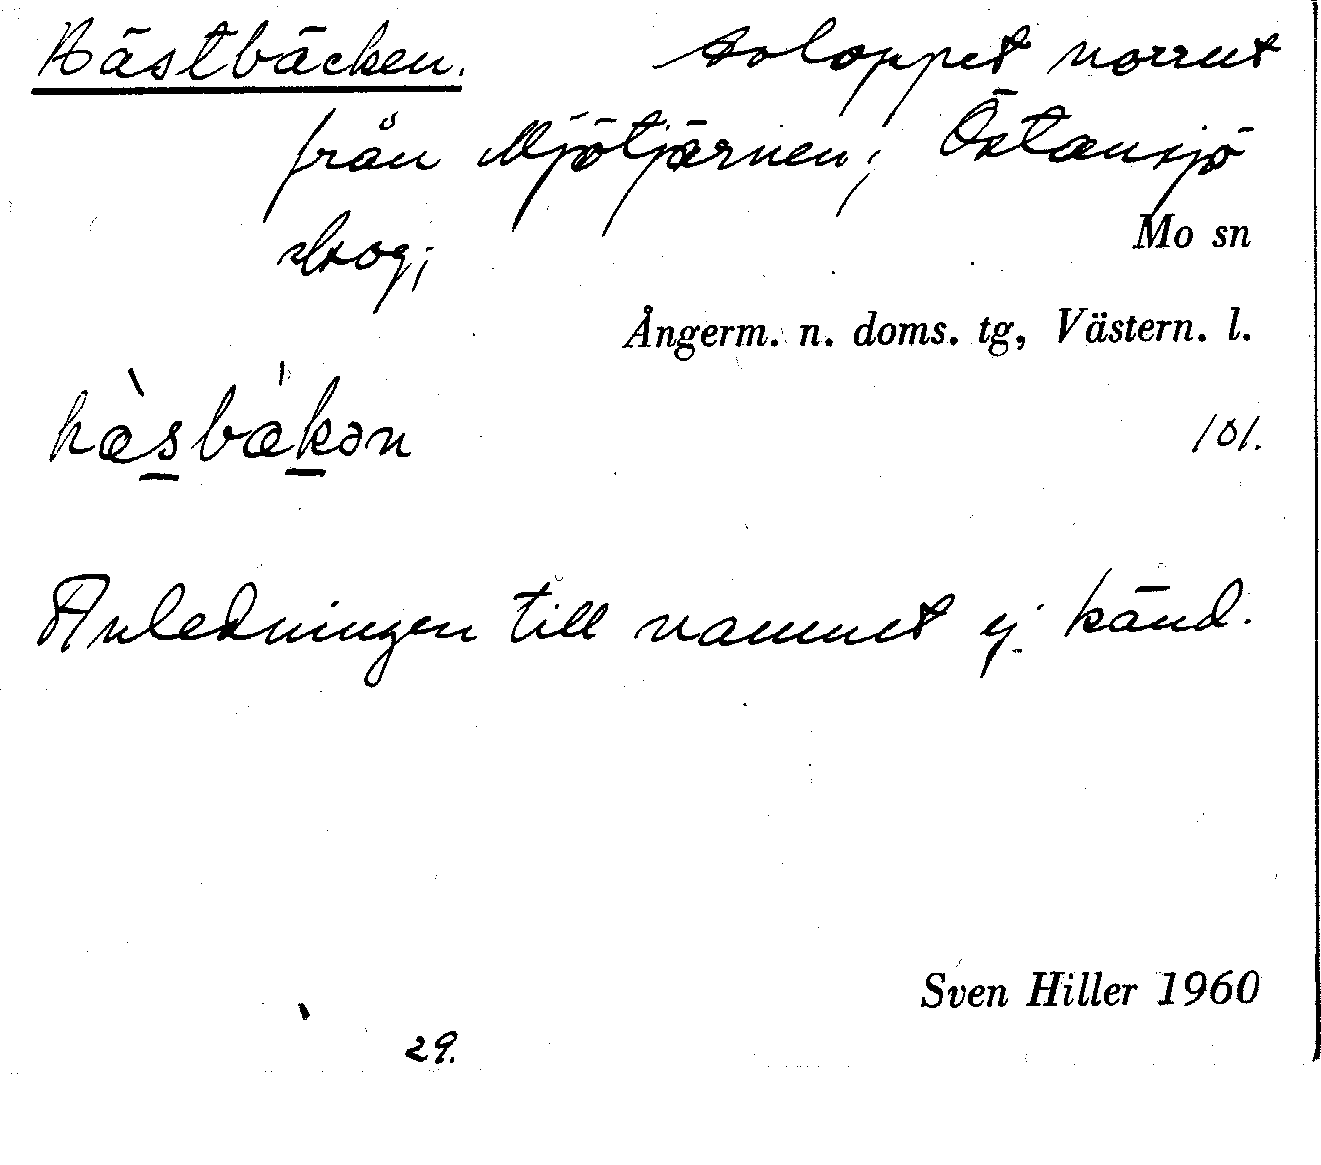 Hästbäcken. Avloppet norrut
från Mjötjärnen; Östansjö
skog;
Mo sn
Ångerm. n. doms. tg, Västern. l.
hæ̀sbækən
101.
Anledningen till namnet ej känd.
Sven Hiller 1960
29.